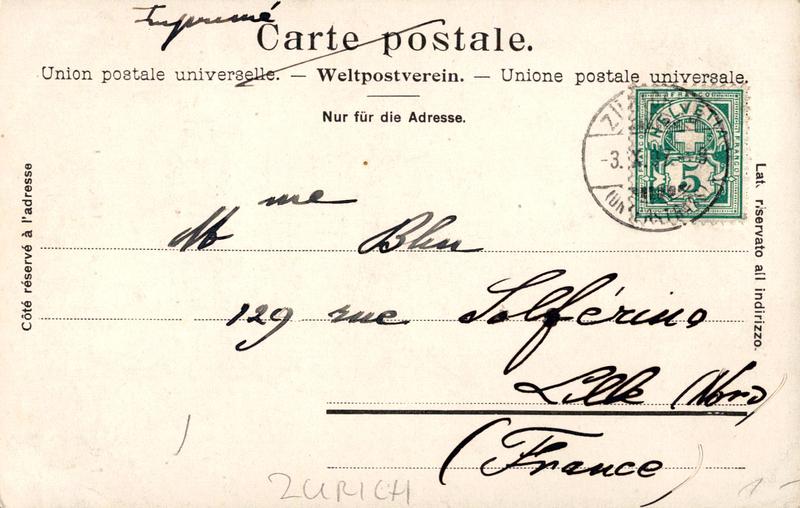 Imprimé
Carte postale.
Union postale universelle. — Weltpostverein. — Unione postale universale.
Nur für die Adresse.
HELVETIA
5
-3.
Côté réservé à l'adresse
Lat. riservato all indirizzo.
Mme
129 rue Solférino
Lille (Nord)
(France)
ZURICH